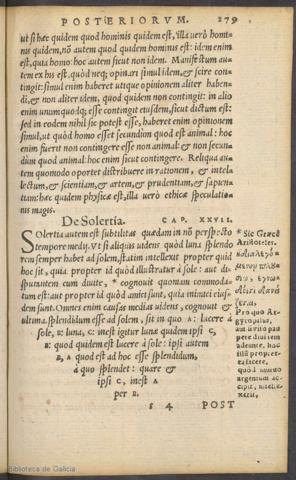 POSTERIORVM. 279
ut si hæc quidem quod hominis quidem est, illa uerò homi-
nis quidem, nō autem quod quidem hominis est: idem enim
est, quia homo: hoc autem sicut non idem. Manifestum au-
tem ex his est, quòd neq; opinari simul idem, & scire con-
tingit: simul enim haberet utique opinionem aliter haben-
di, & non aliter idem, quod quidem non contingit: in alio
enim unumquodq; esse contingit eiusdem, sicut dictum est:
sed in eodem nihil sic potest esse, haberet enim opinionem
simul, ut quòd homo esset secundùm quod est animal: hoc
enim fuerit non contingere esse non animal: & non secun-
dùm quod animal: hoc enim sicut contingere. Reliqua au-
tem quomodo oportet distribuere in rationem, & intel-
lectum, & scientiam, & artem, & prudentiam, & sapien-
tiam: hæc quidem physicæ est, illa uerò ethicæ speculatio-
nis magis.
De Solertia. CAP. XXVII.
Solertia autem est subtilitas quædam in nō perspecto
tempore medij. Vt si aliquis uidens quòd luna splendo
rem semper habet ad solem, statim intellexit propter quid
hoc sit, quia propter id quòd illustratur à sole: aut di-
sputantem cum diuite, * cognouit quoniam commoda-
tum est: aut propter id quòd amici sunt, quia inimici eius-
dem sunt. Omnes enim causas medias uidens, cognouit &
ultima splendidum esse ad solem, sit in quo A: lucere à
sole, B: luna, C: inest igitur lunæ quidem ipsi C,
B: quod quidem est lucere à sole: ipsi autem
B, A quod est ad hoc esse splendidum,
à quo splendet: quare &
ipsi C, inest A
per B.
* Sic Græcè
Aristoteles.
Pro quo Ar-
gyropilus,
aut uiro pau
pere diuitem
adeunte, hac
illū propter-
ea facere,
quòd mutuo
argentum ac-
cipit, intelle-
xerit,
s 4 POST
Biblioteca de Galicia